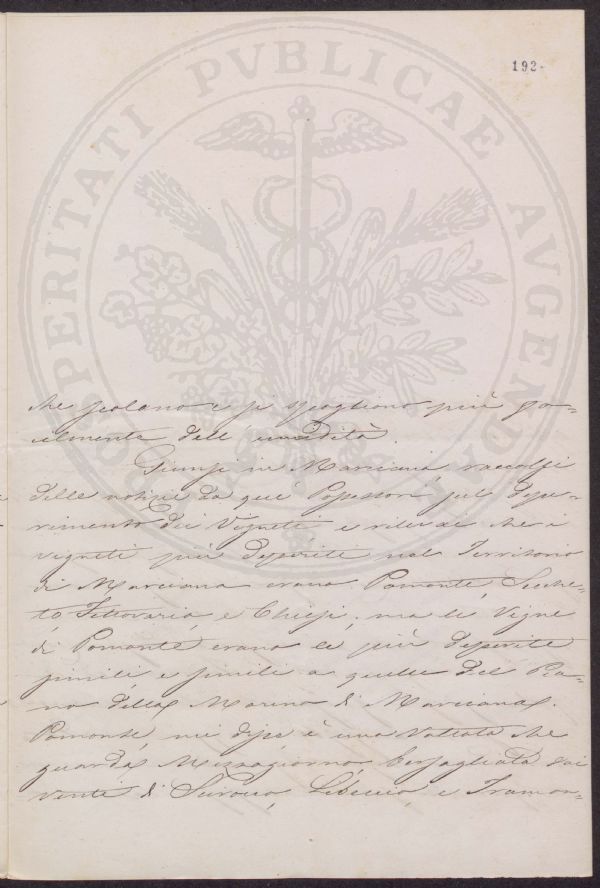 192.
PROSPERITATI PVBLICAE AVGENDAE
che scolano e si spogliono più fa-
cilmente dell' umidità.
Giunsi in Marciana, raccolsi
delle notizie da que' Possessori sul depe-
rimento dei Vigneti e rilevai che i
vigneti più deperiti nel Territorio
di Marciana erano Pomonte, Secche-
to Fettovaria, e Chiessi; ma le Vigne
di Pomonte erano le più deperite
simili e simili a quelle del Pia-
no della Marina di Marciana.
Pomonte, mi disse è una Vallata che
guarda Mezzogiorno, bersagliata dai
venti di Scirocco, Libeccio, e Tramon-